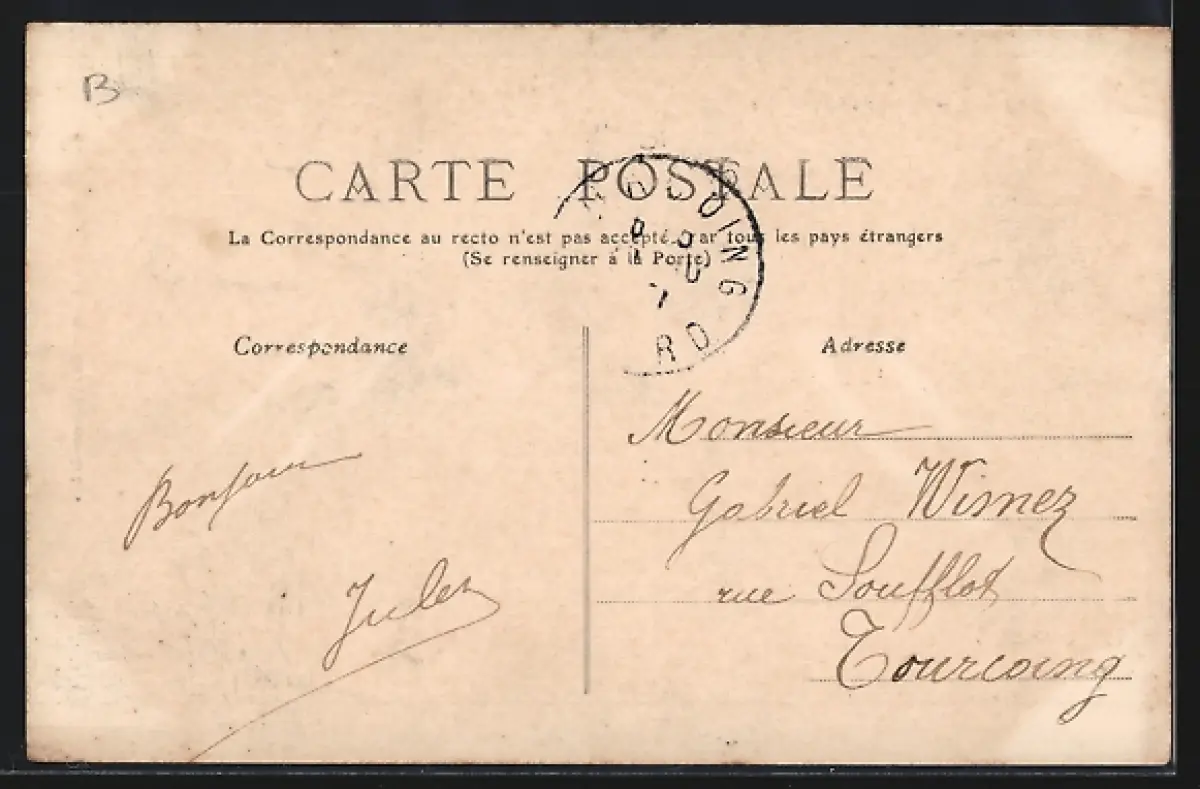 B
CARTE POSTALE
La Correspondance au recto n'est pas acceptée par tous les pays étrangers
(Se renseigner à la Poste)
Correspondance
Adresse
Bonjour
Jules
Monsieur
Gabriel Wismez
rue Soufflot
Tourcoing